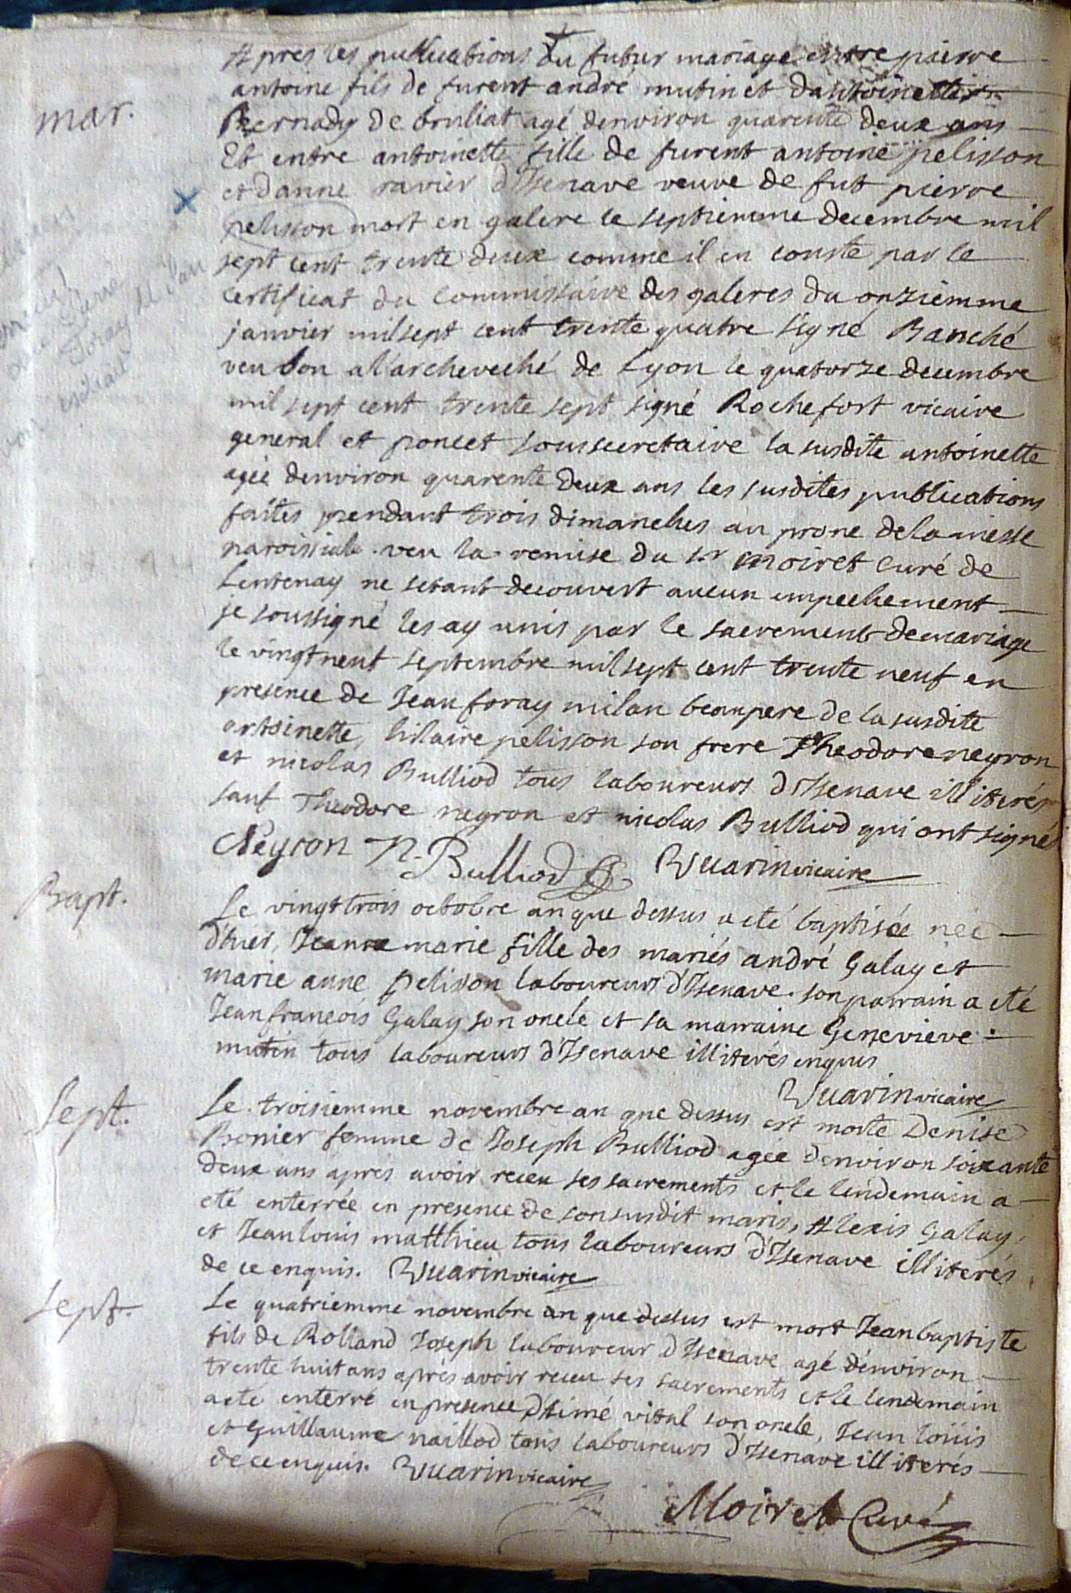 Apres les publications du futur mariage entre pierre
antoine fils de furent andré mutin et dantoinette
mar.
Bernady de bruliat agé denviron quarente deux ans
Et entre antoinette fille de furent antoine pelisson
et danne ravier d'Isenave veuve de fut pierre
pelisson mort en galere le septiemme decembre mil
sept cent trente deux comme il en conste par le
certificat du commissaire des galeres du onziemme
janvier mil sept cent trente quatre signé Banché
veu bon a l'archeveché de Lyon le quatorze decembre
mil sept cent trente sept signé Rochefort vicaire
general et poncet soussecretaire la susdite antoinette
agée denviron quarente deux ans les susdites publications
faites pendant trois dimanches au prone de la messe
paroissiale veu la remise du sr moiret curé de
Lentenay ne setant decouvert aucun empechement
je soussigné les ay unis par le sacrement de mariage
le vingt neuf septembre mil sept cent trente neuf en
presence de Jean foray milan beaupere de la susdite
antoinette, hilaire pelisson son frere Theodore neyron
et nicolas Bulliod tous laboureurs d'Isenave illiterés
sauf Theodore negron et nicolas Bulliod qui ont signé
Neyron N. Bulliod Vuarin vicaire
Bapt.
Le vingt trois octobre an que dessus a eté baptisée née
d'hier, Jeanne marie fille des mariés andré Galay et
marie anne pelisson laboureurs d'Isenave. son parrain a eté
Jean francois Galay son oncle et sa marraine Genevieve
mutin tous laboureurs d'Isenave illiterés enquis
Vuarin vicaire
Sept.
Le troisiemme novembre an que dessus est morte Denise
Bonier femme de Joseph Bulliod agée denviron soixante
deux ans aprés avoir receu ses sacrements et le lendemain a
eté enterrée en presence de son susdit maris, Alexis Galay,
et Jean louis matthieu tous laboureurs d'Isenave illiterés
de ce enquis. Vuarin vicaire
Sept.
Le quatriemme novembre an que dessus est mort Jean baptiste
fils de Rolland Joseph laboureur d'Isenave agé d'énviron
trente huit ans aprés avoir receu ses sacrements et le lendemain
a eté enterré en presence d'Aimé vital son oncle, Jean loüis
et Guillaume naillod tous laboureurs d'Isenave illiterés
de ce enquis. Vuarin vicaire
Moiret Curé